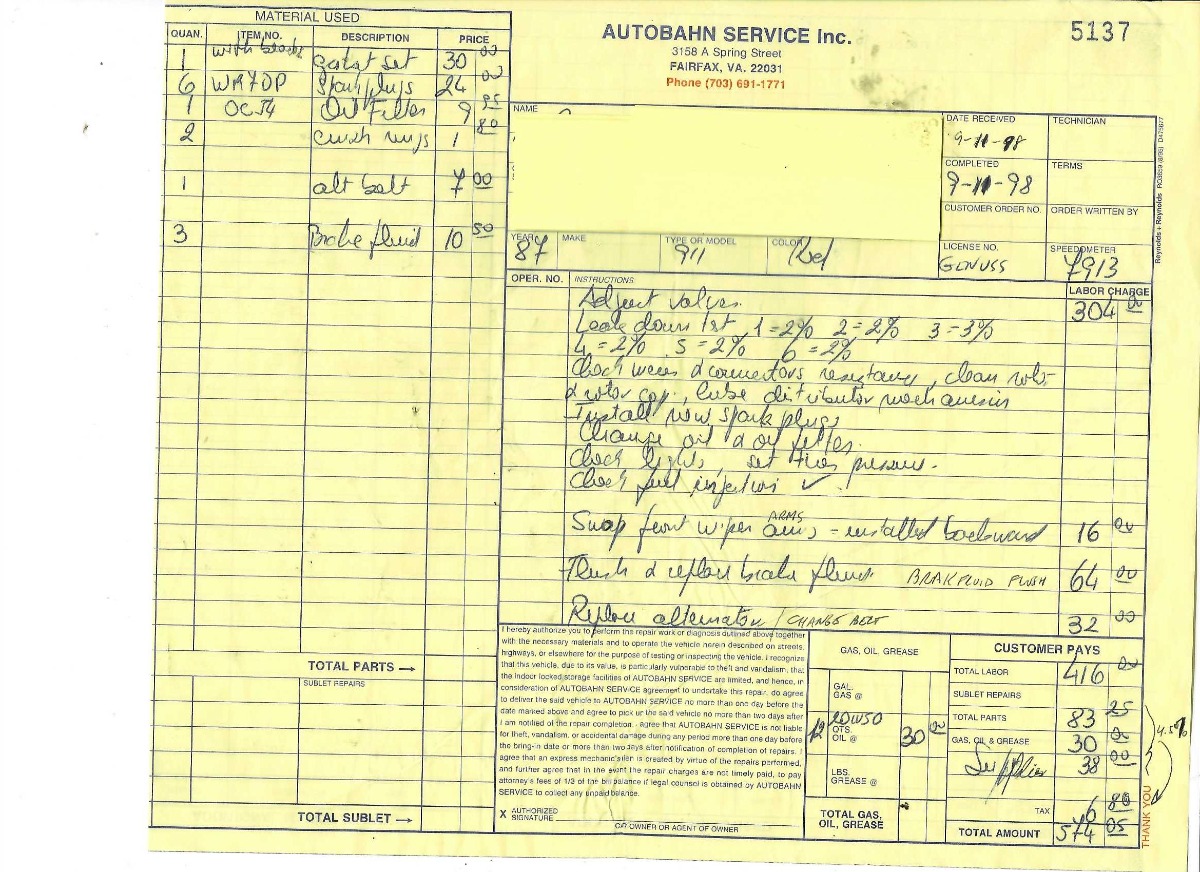 MATERIAL USED
QUAN. ITEM NO. DESCRIPTION PRICE
1 gasket set 30 00
6 WR7DP Spark plugs 24 00
1 OC54 Oil Filter 9 95
2 crush rings 1 80
1 alt belt 7 00
3 Brake fluid 10 50
TOTAL PARTS →
SUBLET REPAIRS
TOTAL SUBLET →
AUTOBAHN SERVICE Inc.
3158 A Spring Street
FAIRFAX, VA. 22031
Phone (703) 691-1771
5137
NAME
DATE RECEIVED 9-11-98
TECHNICIAN
COMPLETED 9-11-98
TERMS
CUSTOMER ORDER NO.
ORDER WRITTEN BY
YEAR 87 MAKE TYPE OR MODEL 911 COLOR Red LICENSE NO. SPEEDOMETER 7913
OPER. NO. INSTRUCTIONS LABOR CHARGE
Adjust valves. 304 00
Leak down 1=2% 2=2% 3=3%
4=2% 5=2% 6=2%
Check wires & connectors resistance, clean
& rotor cap, lube distributor mechanism
Install new spark plugs
Change oil & oil filter.
Check lights, set tires pressure.
Check fuel injection ✓
Swap front wiper arms ARMS - installed backward 16 00
Flush & replace brake fluid BRAKFLUID FLUSH 64 00
Replace alternator / CHANGE BELT 32 00
I hereby authorize you to perform the repair work or diagnosis outlined above together
with the necessary materials and to operate the vehicle herein described on streets,
highways, or elsewhere for the purpose of testing or inspecting the vehicle. I recognize
that this vehicle, due to its value, is particularly vulnerable to theft and vandalism, that
the indoor locked storage facilities of AUTOBAHN SERVICE are limited, and hence, in
consideration of AUTOBAHN SERVICE agreement to undertake this repair, do agree
to deliver the said vehicle to AUTOBAHN SERVICE no more than one day before the
date marked above and agree to pick up the said vehicle no more than two days after
I am notified of the repair completion. I agree that AUTOBAHN SERVICE is not liable
for theft, vandalism, or accidental damage during any period more than one day before
the bring-in date or more than two days after notification of completion of repairs. I
agree that an express mechanic's lien is created by virtue of the repairs performed,
and further agree that in the event the repair charges are not timely paid, to pay
attorney's fees of 1/3 of the bill balance if legal counsel is obtained by AUTOBAHN
SERVICE to collect any unpaid balance.
X AUTHORIZED SIGNATURE
OR OWNER OR AGENT OF OWNER
GAS, OIL, GREASE
GAL. GAS @
12 20W50 QTS. OIL @ 30 00
LBS. GREASE @
TOTAL GAS, OIL, GREASE
CUSTOMER PAYS
TOTAL LABOR 416 00
SUBLET REPAIRS
TOTAL PARTS 83 25
GAS, OIL & GREASE 30 00
Supplies 38 00
4.5%
TAX 6 80
TOTAL AMOUNT 574 05
THANK YOU
Reynolds + Reynolds